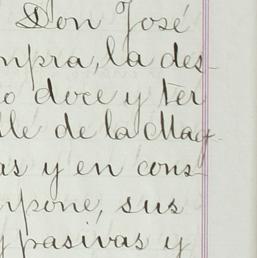 Don José
mpra, la des-
o doce y ter
lle de la Mag-
as y en cons-
mpone, sus
y pasivas y